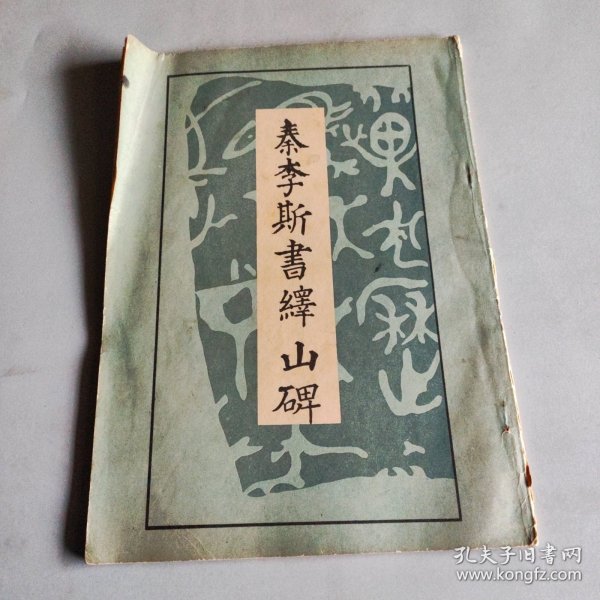 秦李斯書繹山碑
孔夫子旧书网
www.kongfz.com